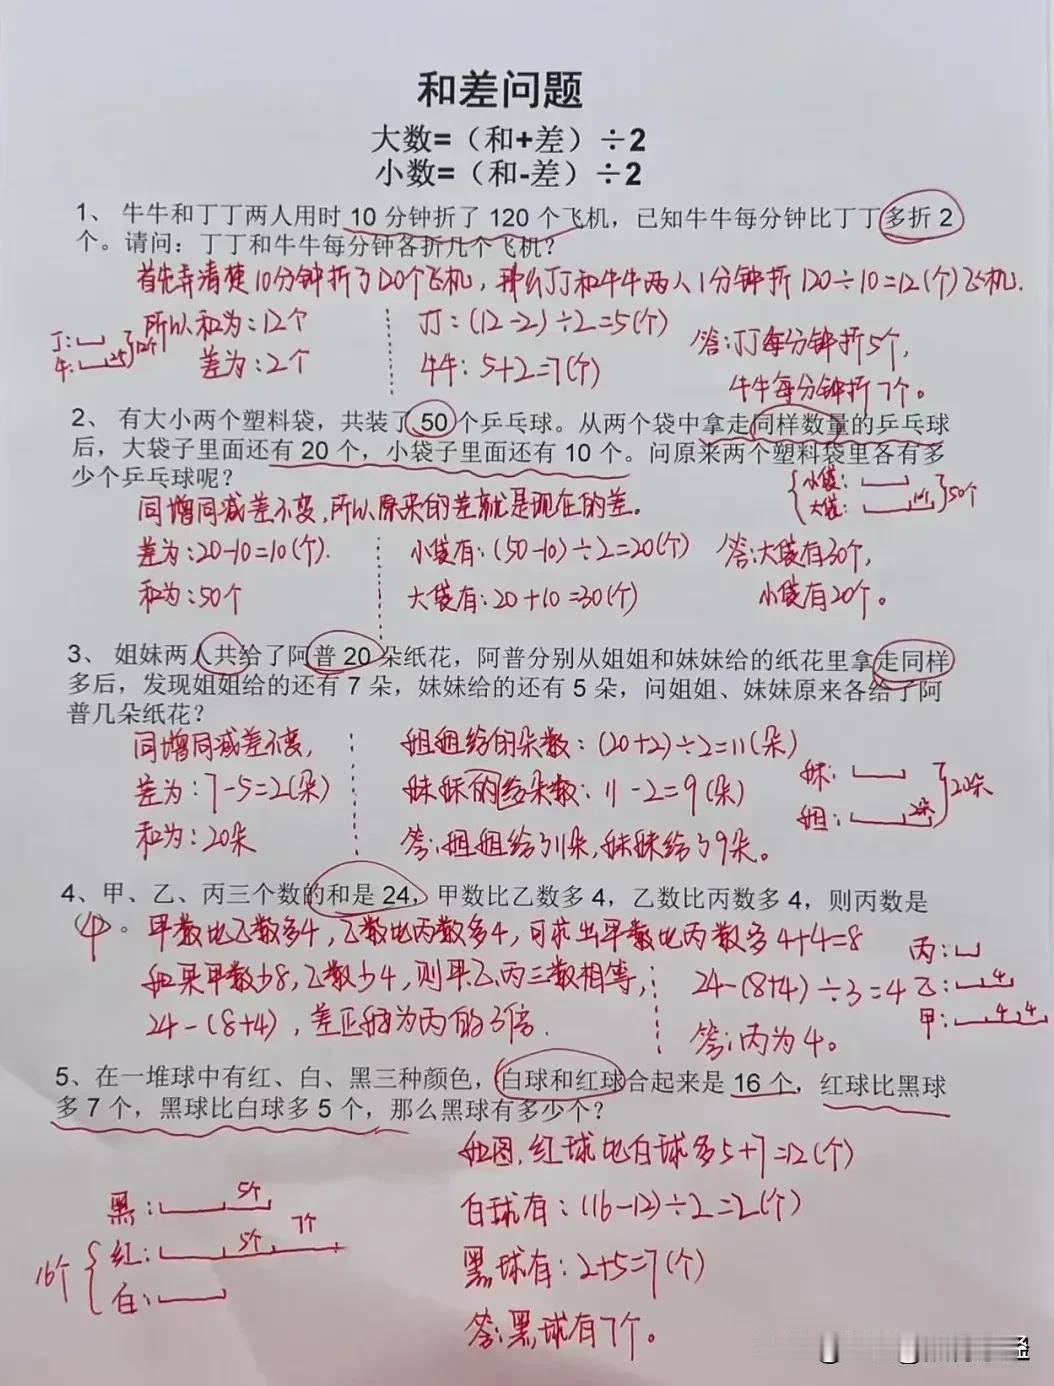 和差问题
大数=（和+差）÷2
小数=（和-差）÷2
1、 牛牛和丁丁两人用时 10 分钟折了 120 个飞机，已知牛牛每分钟比丁丁多折 2
个。请问：丁丁和牛牛每分钟各折几个飞机？
首先弄清楚10分钟折了120个飞机，那么丁丁和牛牛两人1分钟折120÷10=12(个)飞机.
丁:
牛: 2个 12个
所以和为:12个
差为:2个
丁:(12-2)÷2=5(个)
牛牛:5+2=7(个)
答:丁丁每分钟折5个,
牛牛每分钟折7个。
2、 有大小两个塑料袋，共装了 50 个乒乓球。从两个袋中拿走同样数量的乒乓球
后，大袋子里面还有 20 个，小袋子里面还有 10 个。问原来两个塑料袋里各有多
少个乒乓球呢？
小袋:
大袋: 10个 50个
同增同减差不变,所以原来的差就是现在的差。
差为:20-10=10(个).
和为:50个
小袋有:(50-10)÷2=20(个)
大袋有:20+10=30(个)
答:大袋有30个,
小袋有20个。
3、 姐妹两人共给了阿普 20 朵纸花，阿普分别从姐姐和妹妹给的纸花里拿走同样
多后，发现姐姐给的还有 7 朵，妹妹给的还有 5 朵，问姐姐、妹妹原来各给了阿
普几朵纸花？
同增同减差不变,
差为:7-5=2(朵)
和为:20朵
姐姐给的朵数:(20+2)÷2=11(朵)
妹妹的给朵数: 11-2=9(朵)
答:姐姐给了11朵,妹妹给了9朵。
妹:
姐: 2朵 20朵
4、甲、乙、丙三个数的和是 24，甲数比乙数多 4，乙数比丙数多 4，则丙数是
(4)。
甲数比乙数多4,乙数比丙数多4,可求出甲数比丙数多4+4=8
如果甲数少8,乙数少4,则甲.乙.丙三数相等,
24-(8+4),差正好为丙的3倍.
24-(8+4)÷3=4
答:丙为4。
丙:
乙: 4
甲: 4 4
5、在一堆球中有红、白、黑三种颜色，白球和红球合起来是 16 个，红球比黑球
多 7 个，黑球比白球多 5 个，那么黑球有多少个？
黑: 5个
红: 5个 7个
白:
16个
如图,红球比白球多5+7=12(个)
白球有:(16-12)÷2=2(个)
黑球有:2+5=7(个)
答:黑球有7个。